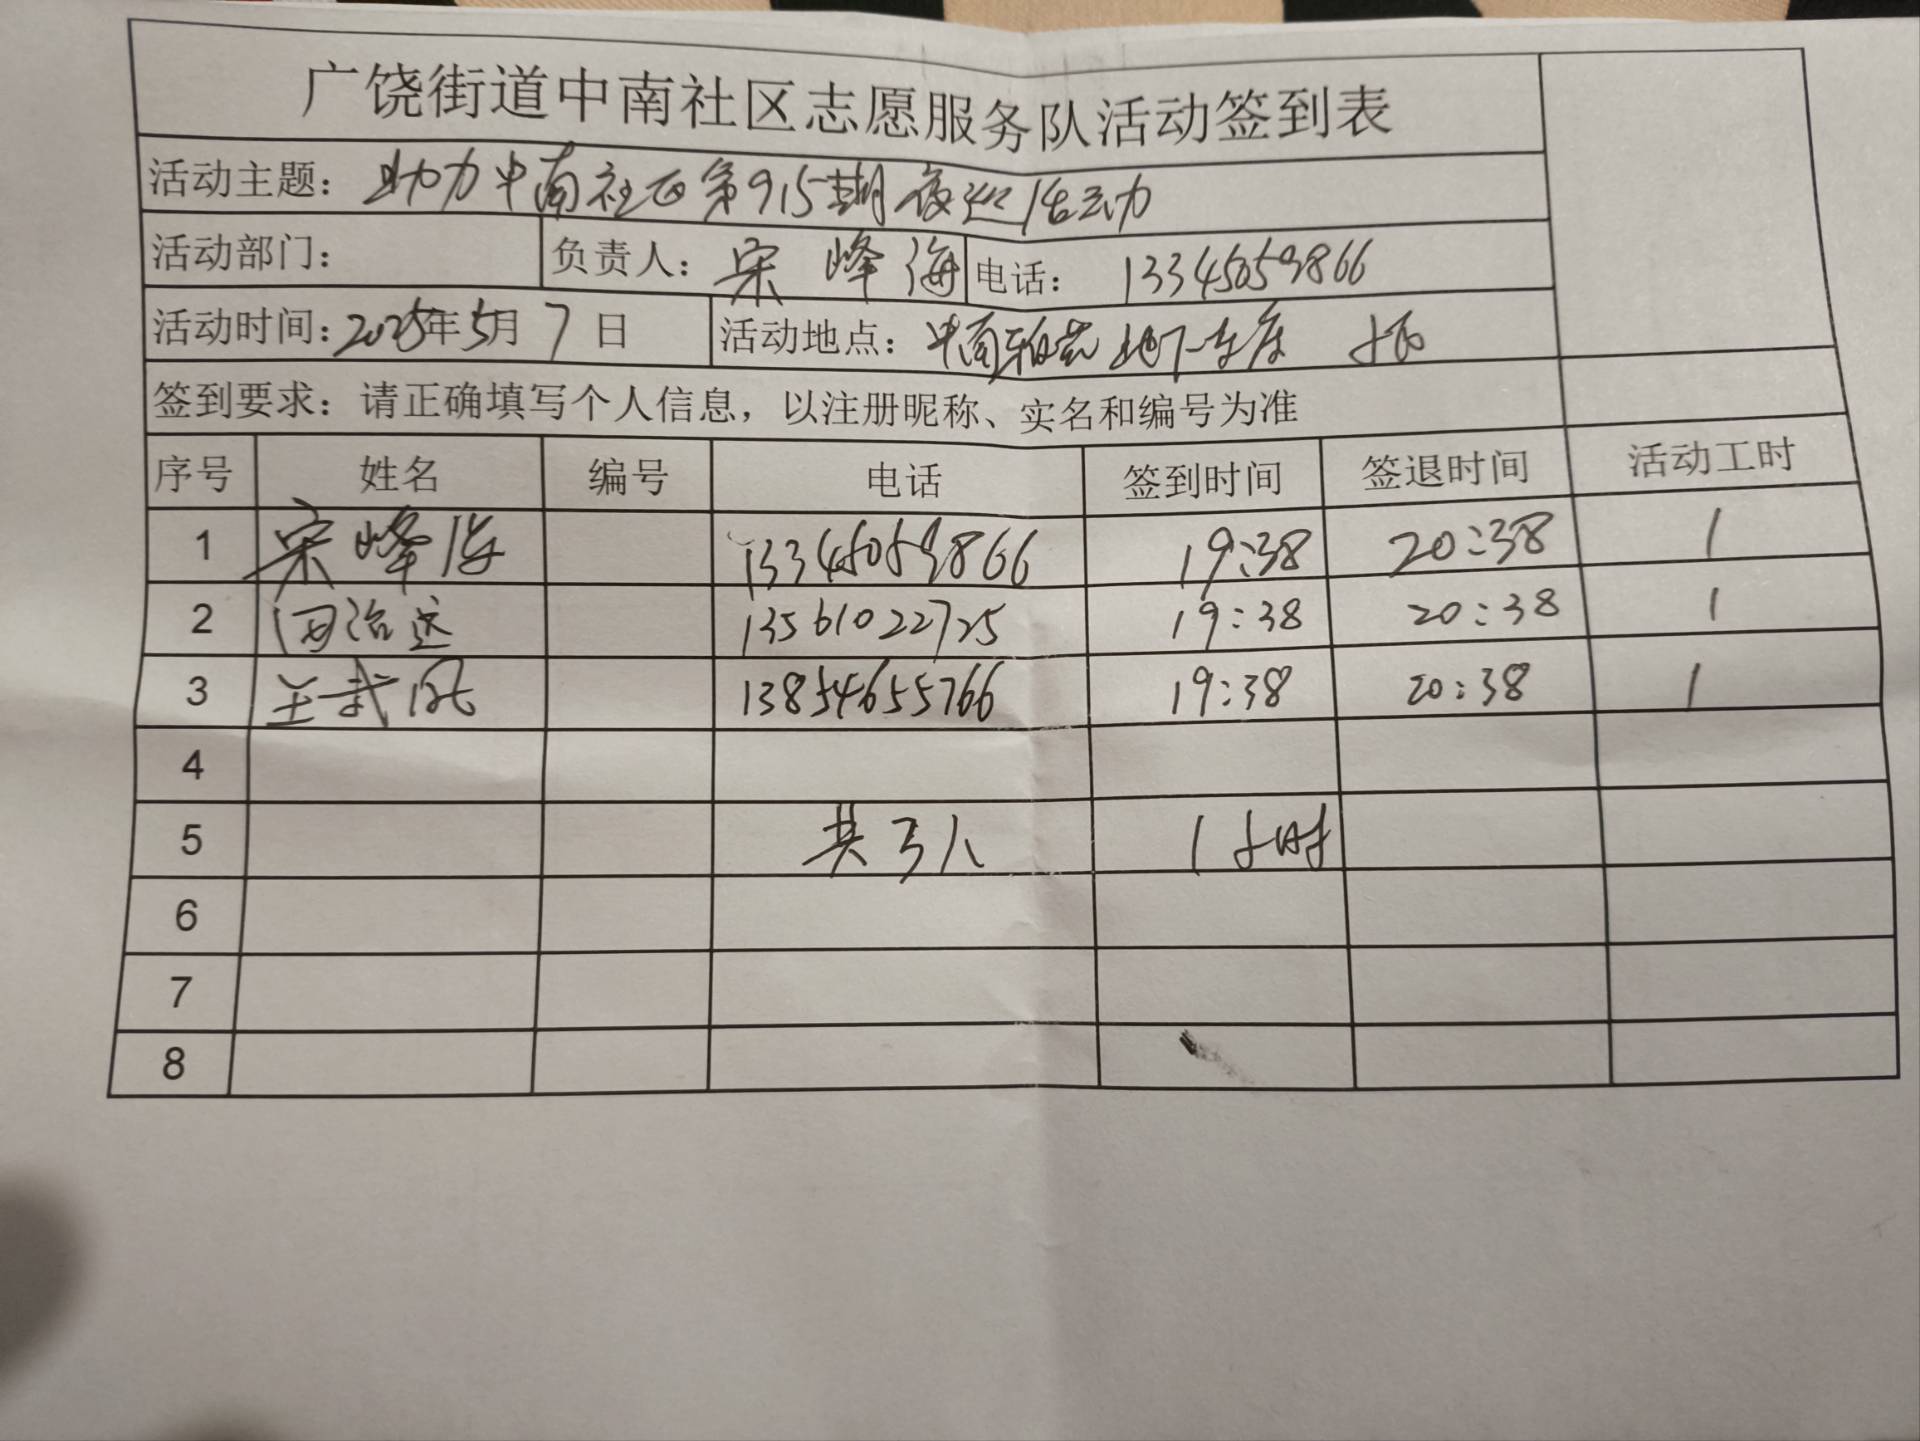 广饶街道中南社区志愿服务队活动签到表
活动主题：助力中南社区第915期夜巡活动
活动部门： 负责人：宋峰海 电话：13345059866
活动时间：2025年5月7日 活动地点：中南雅苑地下车库 小区
签到要求：请正确填写个人信息，以注册昵称、实名和编号为准
序号 姓名 编号 电话 签到时间 签退时间 活动工时
1 宋峰海 13345059866 19:38 20:38 1
2 治远 13561022725 19:38 20:38 1
3 王武 13854655766 19:38 20:38 1
4
5 共3人 1小时
6
7
8